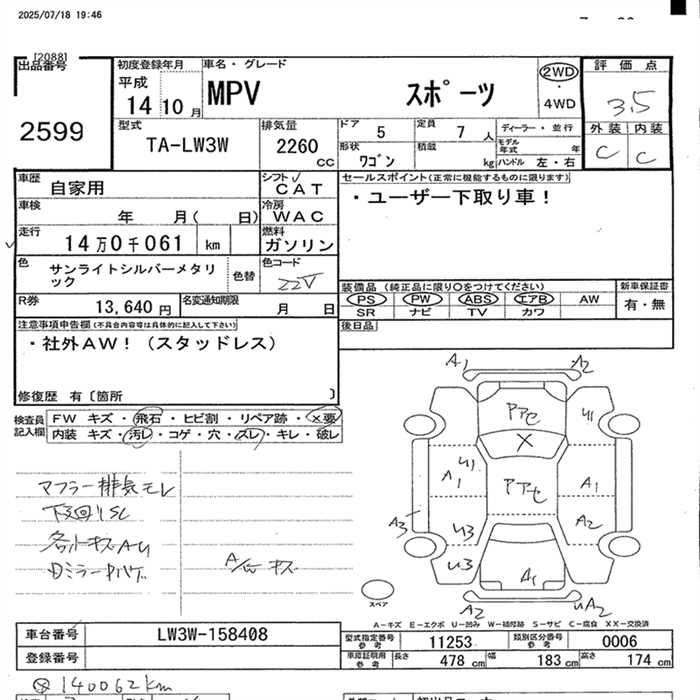 2025/07/18 19:46
[2088]
出品番号
2599
初度登録年月
平成
14 10 月
車名・グレード
MPV スポーツ
2WD
・
4WD
評価点
3.5
外装 内装
C C
型式
TA-LW3W
排気量
2260 cc
ドア 5
定員 7 人
形状 ワゴン
積載 kg
ディーラー・並行
モデル年式 年
ハンドル 左・右
車歴
自家用
シフト
CAT
車検
年 月( 日)
冷房
WAC
走行
14万0千061 km
燃料
ガソリン
色
サンライトシルバーメタリック
色替
色コード
22V
R券
13,640 円
名変通知期限
月 日
セールスポイント(正常に機能するものに限ります)
・ユーザー下取り車！
装備品 (純正品に限り○をつけてください)
PS PW ABS エアB AW
SR ナビ TV カワ
新車保証書
有・無
後日品
注意事項申告欄(不具合内容等は具体的に記入して下さい)
・社外AW！（スタッドレス）
修復歴 有〔箇所 〕
検査員記入欄
FW キズ・飛石・ヒビ割・リペア跡・×要
内装 キズ・汚レ・コゲ・穴・スレ・キレ・破レ
マフラー排気モレ
A/W キズ
A1 A2
アアセ
U1
X
U1
A1
アアセ
A1
A3
A2
U3
U3
A1
A2
UA2
スペア
A－キズ E－エクボ U－凹み W－補修跡 S－サビ C－腐食 XX－交換済
車台番号
LW3W-158408
登録番号
型式指定番号 参考 11253
類別区分番号 参考 0006
車庫証明用 参考
長さ 478 cm 幅 183 cm 高さ 174 cm
140062km